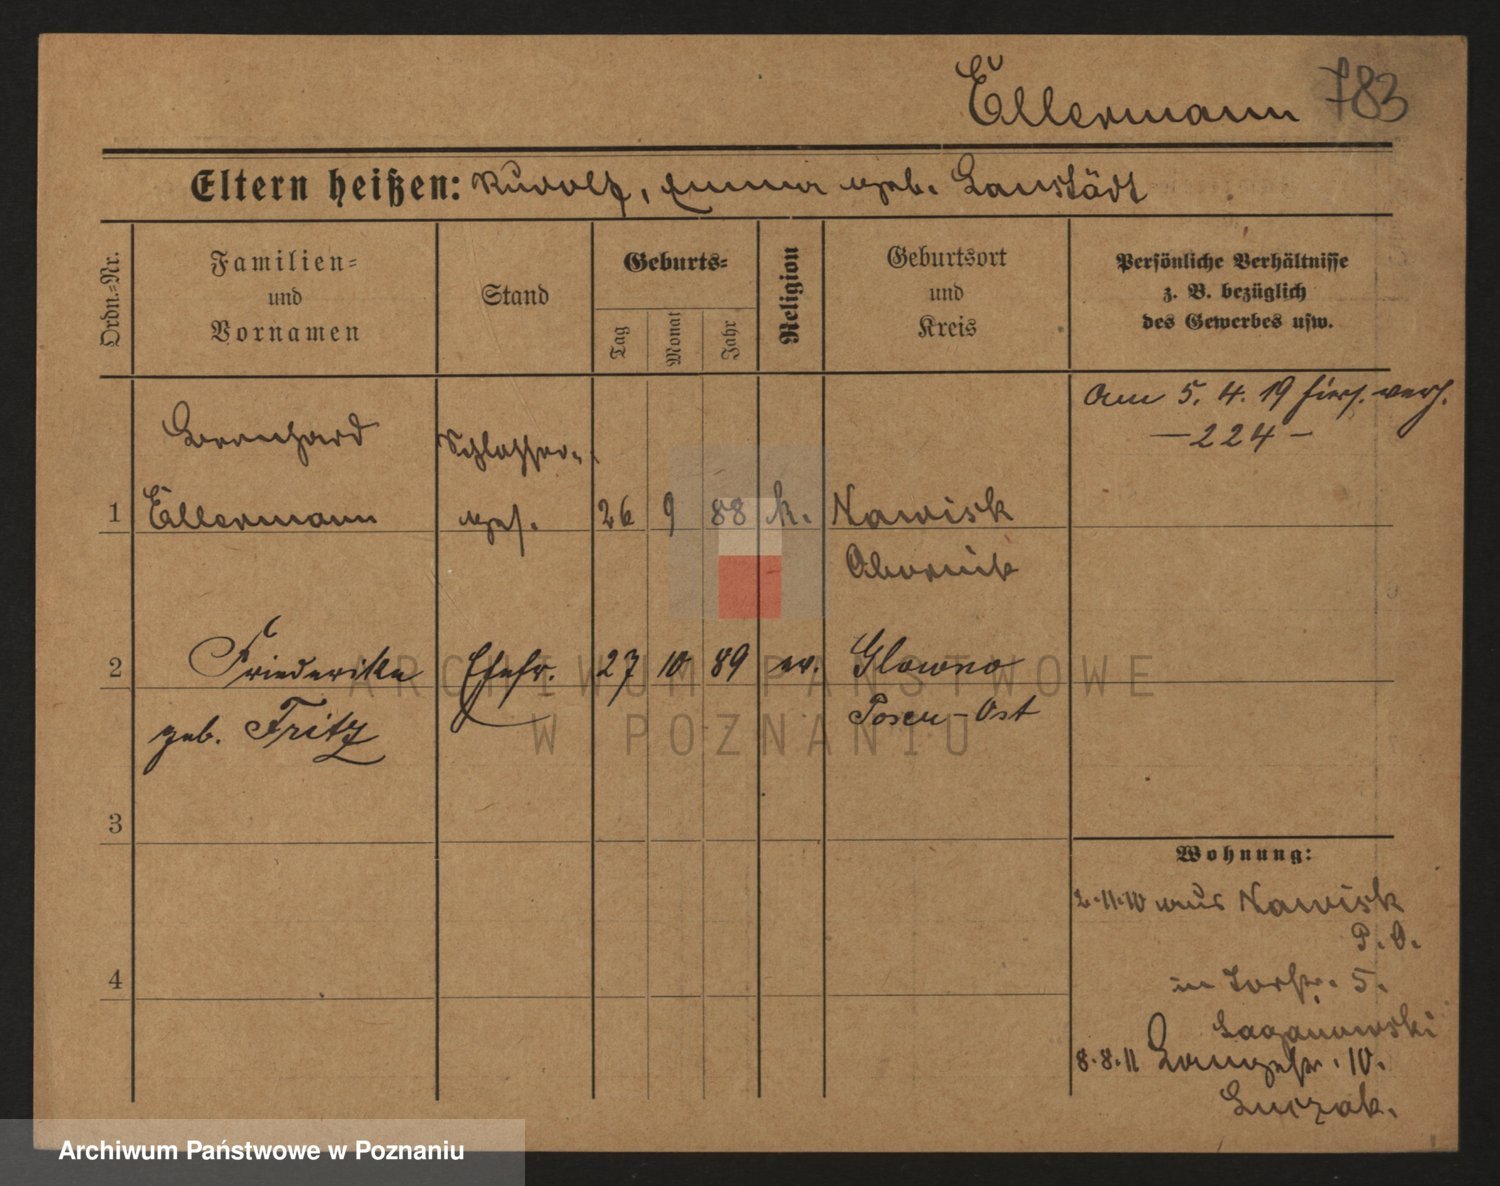 Ellermann 783
Eltern heißen: Rudolf, Emma geb. Lanstädt
Ordn.-Nr.
Familien-
und
Vornamen
Stand
Geburts-
Tag
Monat
Jahr
Religion
Geburtsort
und
Kreis
Persönliche Verhältnisse
z. B. bezüglich
des Gewerbes usw.
Am 5. 4. 19 hier verh.
- 224 -
Bernhard Schlosser-
1 Ellermann ges. 26 9 88 k. Nawisk
Obornik
2 Friederike Ehefr. 27 10 89 ev. Glowno
geb. Fritz Posen-Ost
3
4
Wohnung:
2.11.10 aus Nawisk
P. O.
in Torstr. 5.
Laganowski
8.8.11 Langestr. 10.
Luczak.
ARCHIWUM PAŃSTWOWE
W POZNANIU
Archiwum Państwowe w Poznaniu